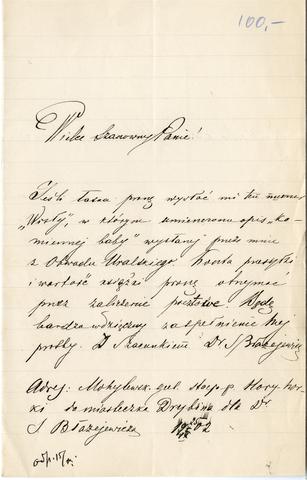 100,-
Wielce Szanowny Panie!
Jeśli łaska proszę wysłać mi tu numer
„Wisły", w którym umieszczono opis „ka-
miennej baby" wysłany przez mnie
z Obwodu Uralskiego. Koszta przesyłki
i wartość książki proszę otrzymać
przez zaliczenie pocztowe. Będę
bardzo wdzięczny za spełnienie mej
prośby. Z szacunkiem Dr S Błażejewicz
Adres: Mohylewsk. gub. st. p. Hory-Hor-
ki do miasteczka Drybina dla Dr
S Błażejewicza